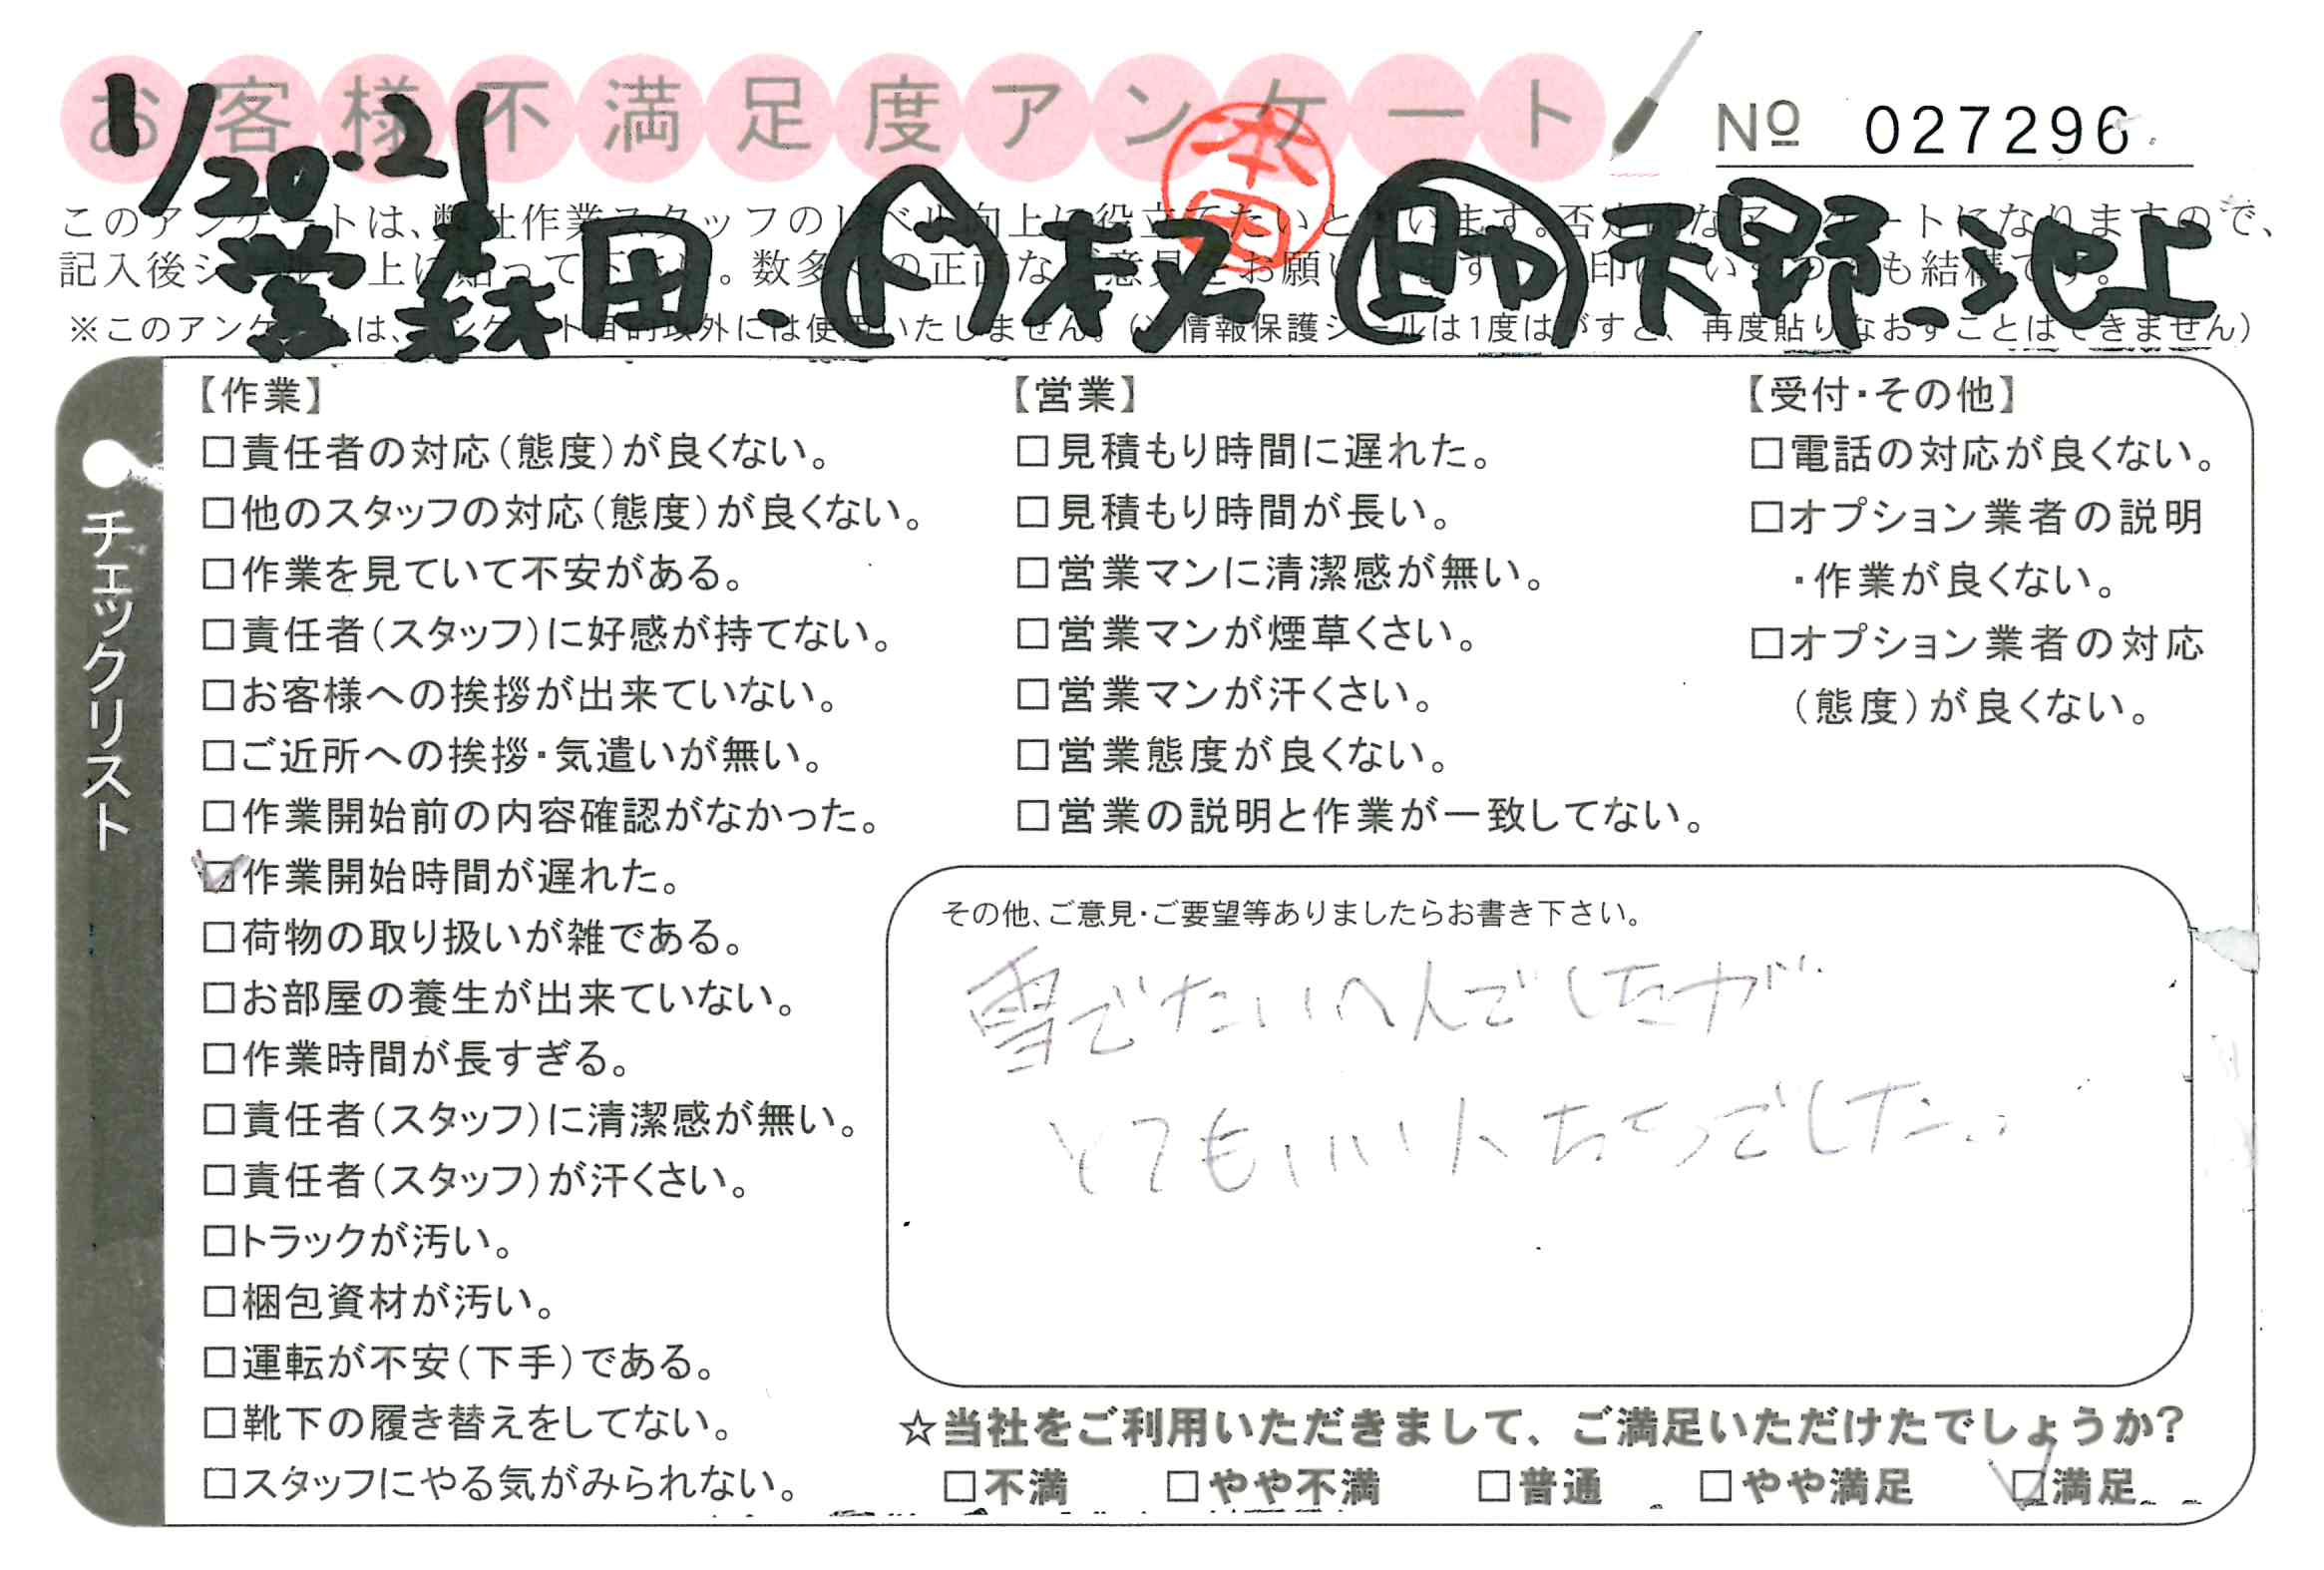 お客様不満足度アンケート
No 027296
1/20・21
本田
営森田、ト枝 助天野、池上
このアンケートは、弊社作業スタッフのレベル向上に役立てたいと思います。否定的なアンケートになりますので、
記入後シールを上に貼って下さい。数多くの正直なご意見をお願いします。
※このアンケートは、アンケート目的以外には使用いたしません。(※情報保護シールは1度はがすと、再度貼りなおすことはできません)
チェックリスト
【作業】
□責任者の対応(態度)が良くない。
□他のスタッフの対応(態度)が良くない。
□作業を見ていて不安がある。
□責任者(スタッフ)に好感が持てない。
□お客様への挨拶が出来ていない。
□ご近所への挨拶・気遣いが無い。
□作業開始前の内容確認がなかった。
☑作業開始時間が遅れた。
□荷物の取り扱いが雑である。
□お部屋の養生が出来ていない。
□作業時間が長すぎる。
□責任者(スタッフ)に清潔感が無い。
□責任者(スタッフ)が汗くさい。
□トラックが汚い。
□梱包資材が汚い。
□運転が不安(下手)である。
□靴下の履き替えをしてない。
□スタッフにやる気がみられない。
【営業】
□見積もり時間に遅れた。
□見積もり時間が長い。
□営業マンに清潔感が無い。
□営業マンが煙草くさい。
□営業マンが汗くさい。
□営業態度が良くない。
□営業の説明と作業が一致してない。
【受付・その他】
□電話の対応が良くない。
□オプション業者の説明
・作業が良くない。
□オプション業者の対応
(態度)が良くない。
その他、ご意見・ご要望等ありましたらお書き下さい。
雪でたいへんでしたが
とてもいい人たちでした。
☆当社をご利用いただきまして、ご満足いただけたでしょうか?
□不満 □やや不満 □普通 □やや満足 ☑満足